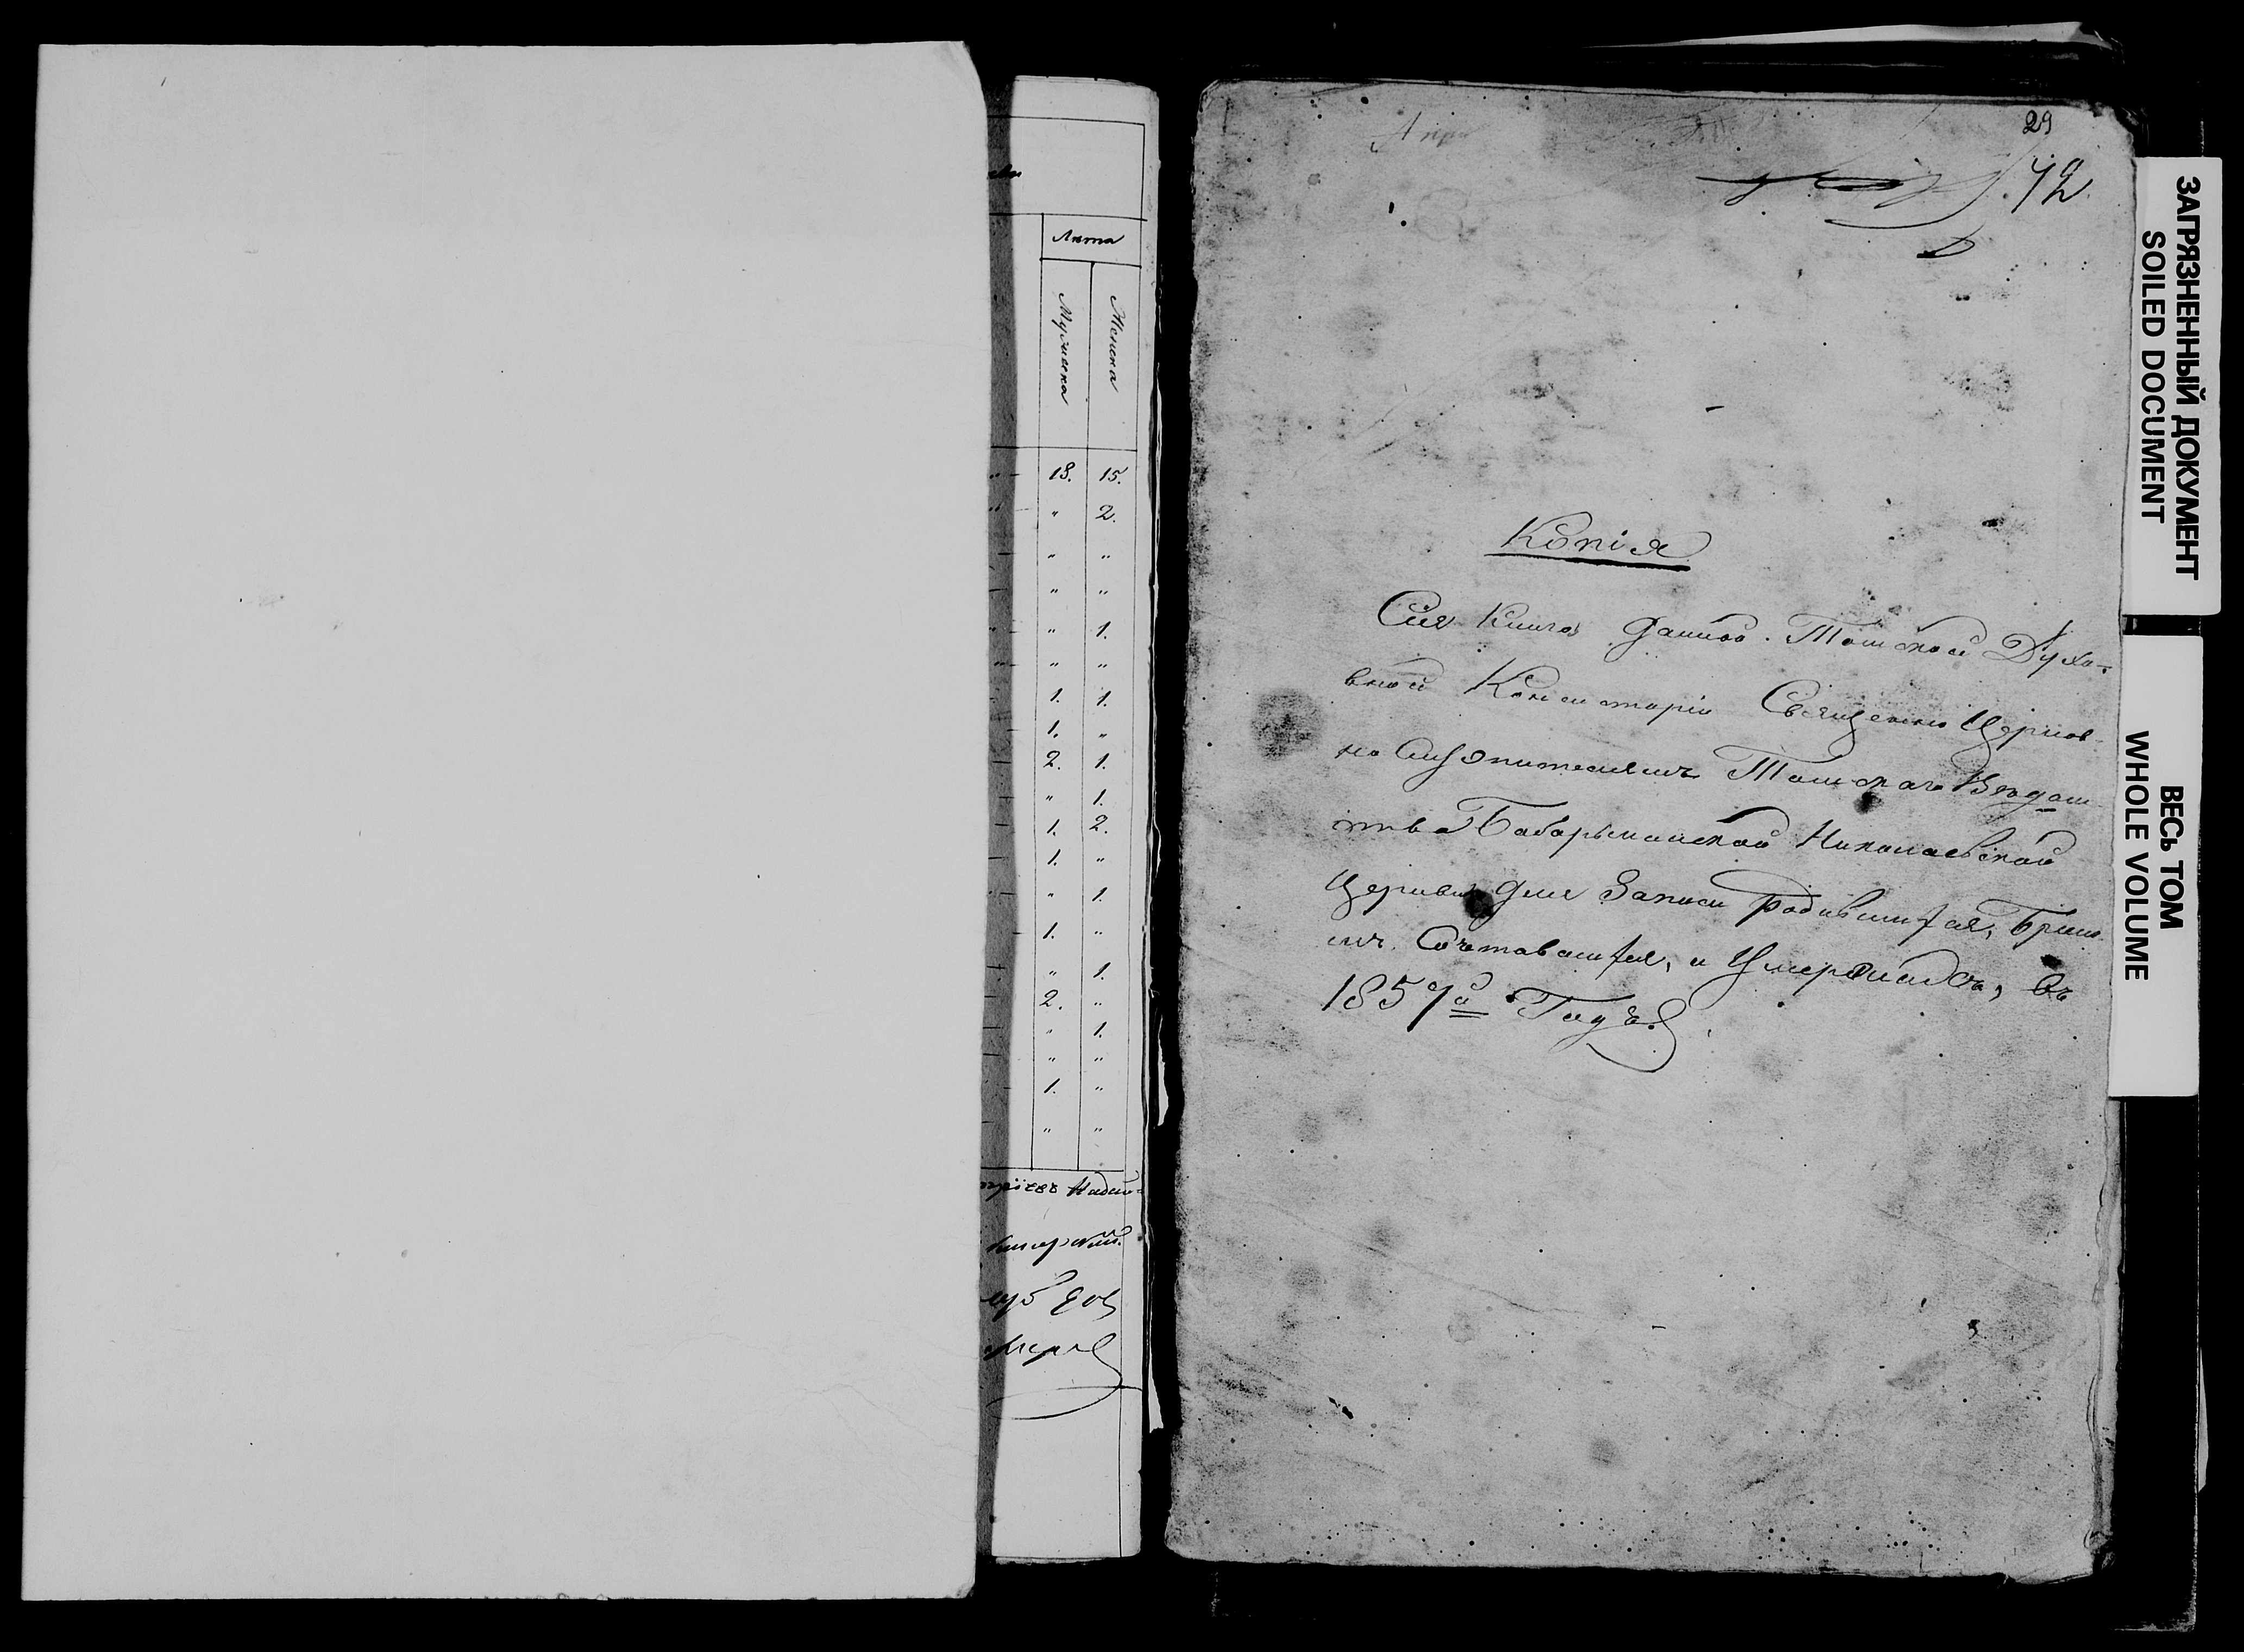 Лѣта
Мужеска
Женска
18. 15.
" 2.
" "
" "
" 1.
" "
1. 1.
1. "
2. 1.
" 1.
1. 2.
1. "
" 1.
1. "
" 1.
2. "
" 1.
" "
1. "
" "
29
42
Копія
Сия Книга данна Томской Духо-
вной Консисторіи Священно Церков-
но служителямъ Томскаго Вѣдом-
ства Бабарыкинской Николаевской
Церкви для Записи родившихся, Брако-
мъ Сочетавшихся, и Умершихъ, въ
1857й Годъ.
ЗАГРЯЗНЕННЫЙ ДОКУМЕНТ
SOILED DOCUMENT
ВЕСЬ ТОМ
WHOLE VOLUME